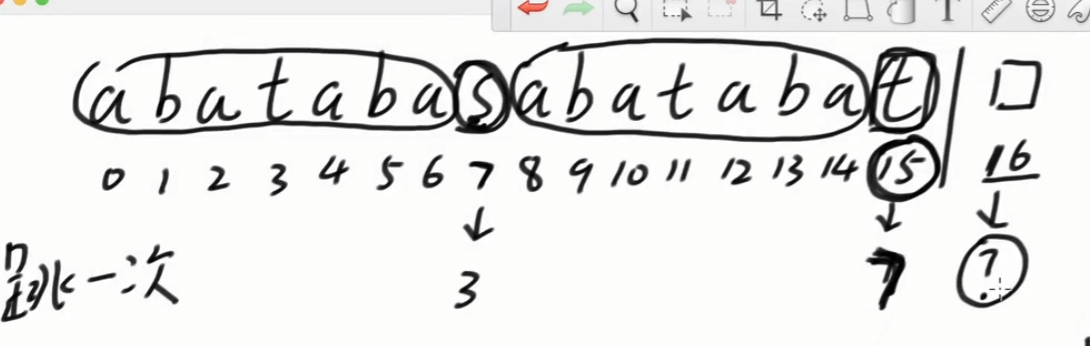 abatabasabatabat
0 1 2 3 4 5 6 7 8 9 10 11 12 13 14 15 16
3 7 ?
跳一次